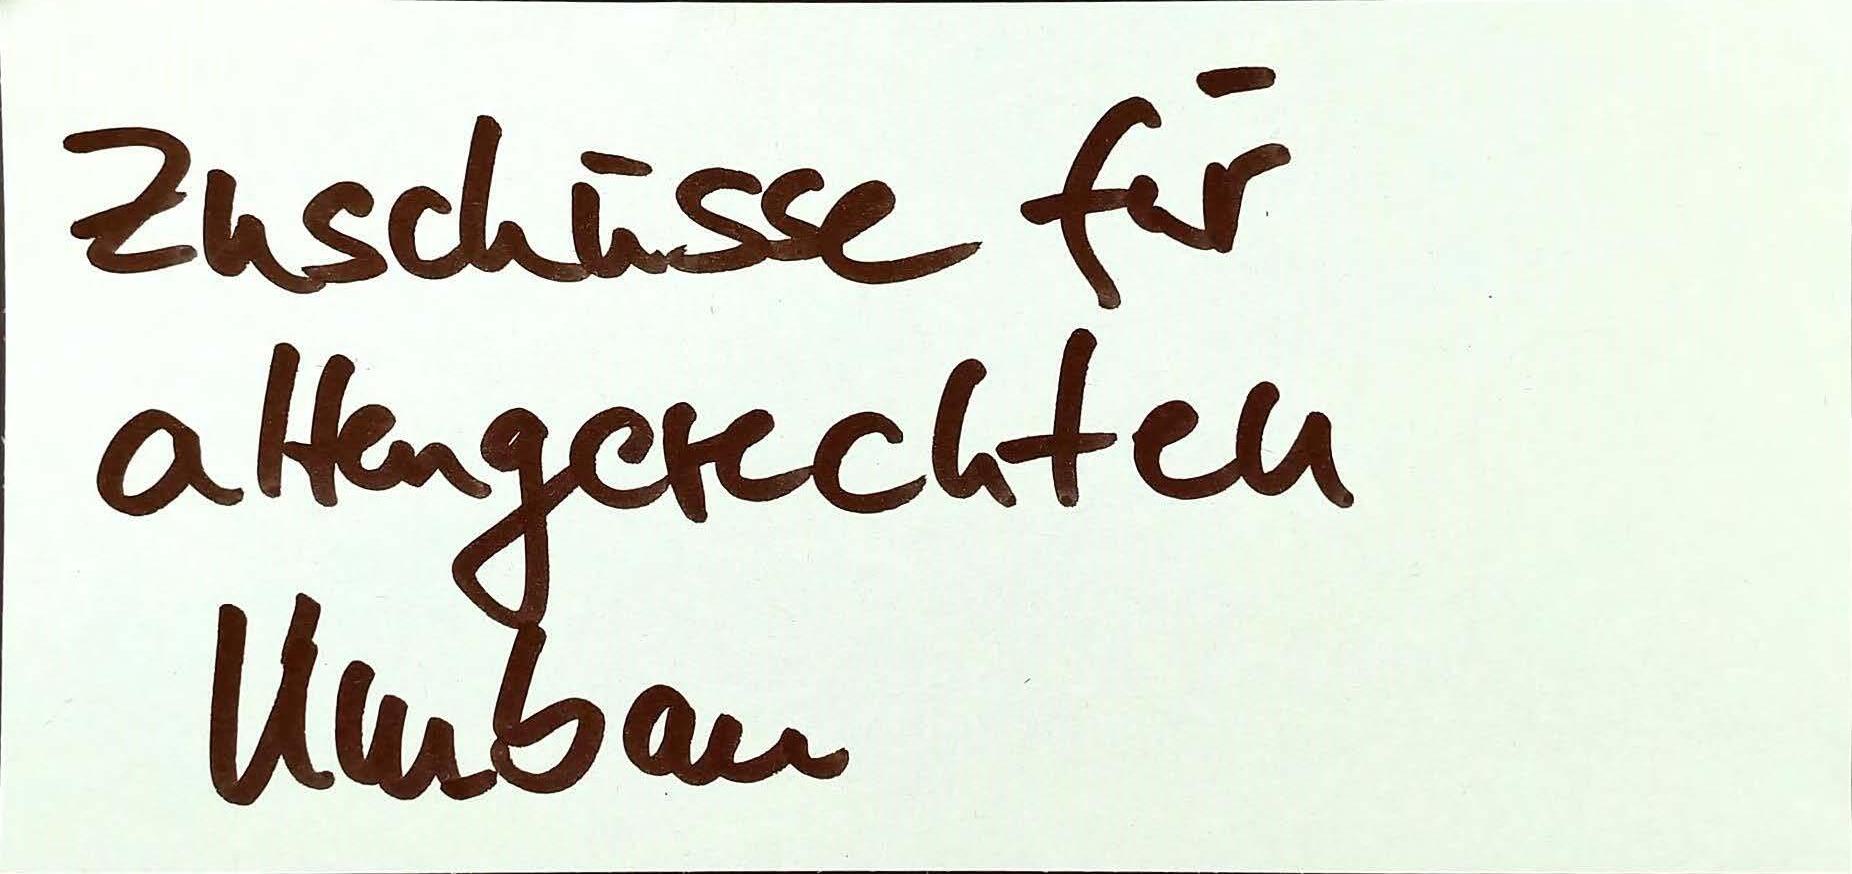 Zuschüsse für
altengerechten
Umbau